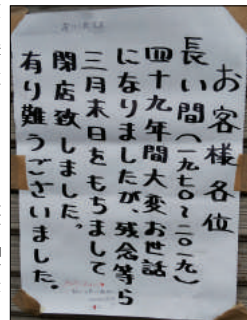 お客様各位
長い間(一九七〇~二〇一九)
四十九年間大変お世話
になりましたが、残念等ら
三月末日をもちまして
閉店致しました。
有り難うございました。